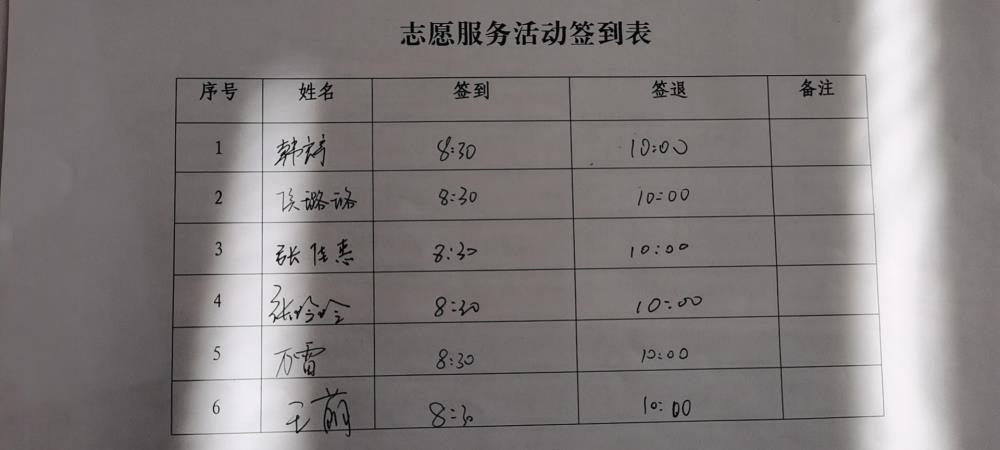 志愿服务活动签到表
序号 姓名 签到 签退 备注
1 韩诗 8:30 10:00
2 侯璐璐 8:30 10:00
3 张佳惠 8:30 10:00
4 张玲玲 8:30 10:00
5 万雷 8:30 10:00
6 王萌 8:30 10:00